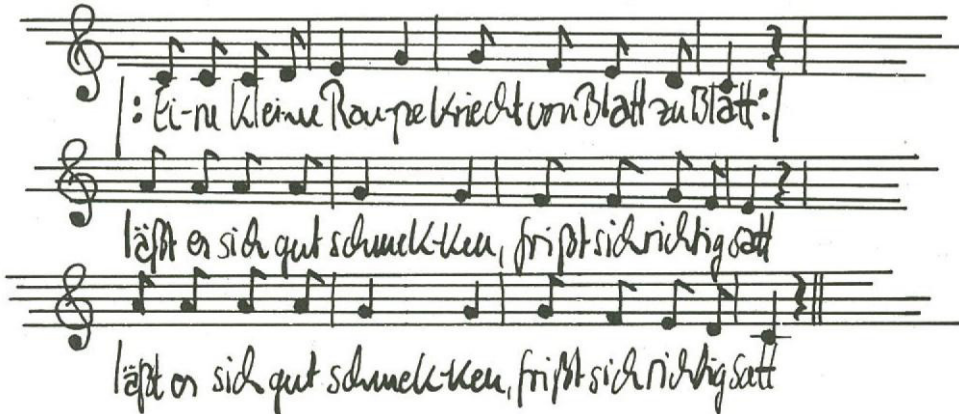 |: Ei-ne kleine Rau-pe kriecht von Blatt zu Blatt :|
läßt es sich gut schmek-ken, frißt sich richtig satt
läßt es sich gut schmek-ken, frißt sich richtig satt